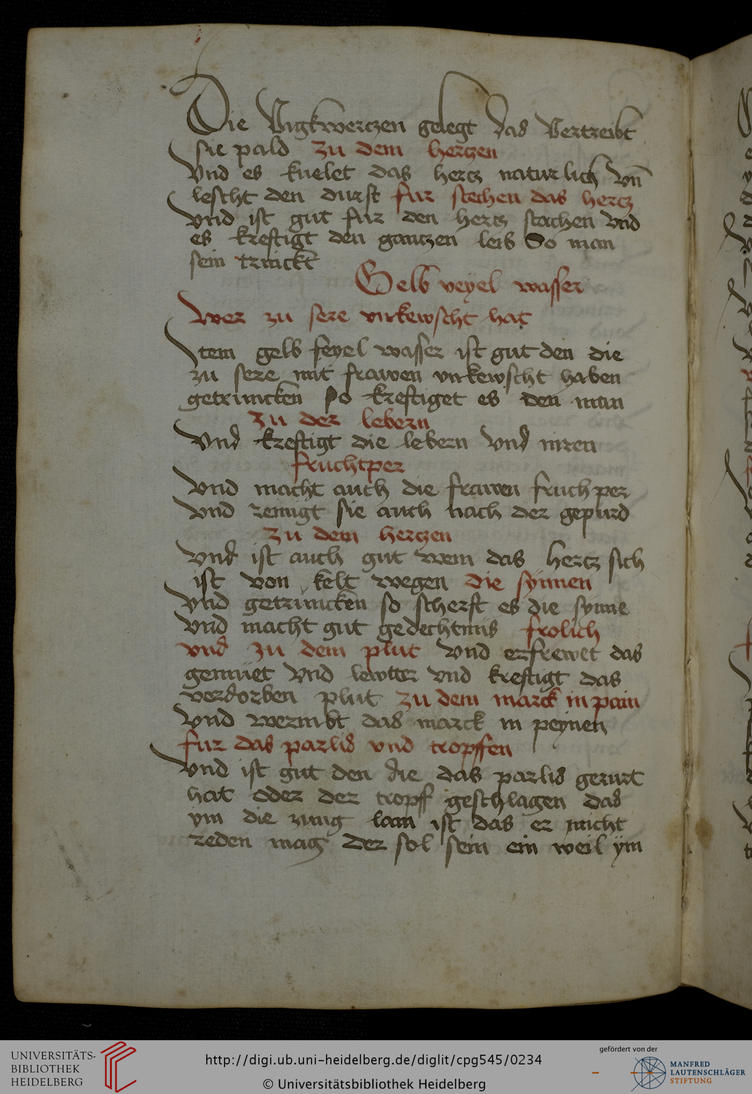 Die Vigkwerczen gelegt das Vertreibt
sie pald zu dem herczen
Vnd es kuelet das hercz naturlich vn̄
lescht den durst fur stechen das hercz
Vnd ist gut fur den hercz stechen Vnd
es kreftigt den ganczen leib So man
sein trinckt
Gelb veyel wasser
Wer zu sere vnkewscht hat
Item gelb feyel wasser ist gut den die
zu sere mit frawen vnkewscht haben
getruncken so kreftiget es den man
zu der lebern
Vnd kreftigt die lebern Vnd niren
fruchtper
Vnd macht auch die frawen fruchper
Vnd reinigt sie auch nach der gepurd
zu dem herczen
Vnd ist auch gut wem das hercz sich
ist von kelt wegen die synnen
Vnd getruncken so scherft es die synne
Vnd macht gut gedechtnus frolich
vnd zu dem plut Vnd erfrewet das
gemuet Vnd lewtter Vnd kreftigt das
verdorben plut zu dem marck in pain
Vnd wermbt das marck in peynen
fur das parlis vnd tropffen
Vnd ist gut den die das parlis gerurt
hat oder der tropff geschlagen das
ym die zung lam ist das er nicht
reden mag Der sol sein ein weil ym
UNIVERSITÄTS-
BIBLIOTHEK
HEIDELBERG
http://digi.ub.uni-heidelberg.de/diglit/cpg545/0234
© Universitätsbibliothek Heidelberg
gefördert von der
MANFRED
LAUTENSCHLÄGER
STIFTUNG